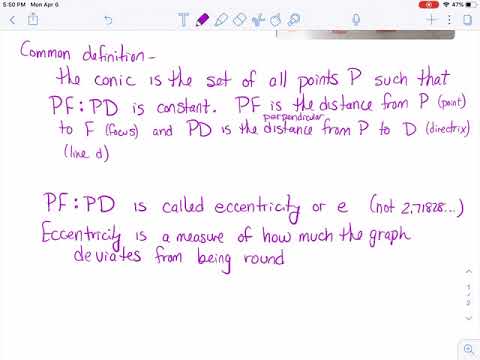 5:50 PM Mon Apr 6
47%
Common definition -
the conic is the set of all points P such that
PF:PD is constant. PF is the distance from P (point)
perpendicular
to F (focus) and PD is the distance from P to D (directrix)
(line d)
PF:PD is called eccentricity or e (not 2.71828...)
Eccentricity is a measure of how much the graph
deviates from being round
1
2